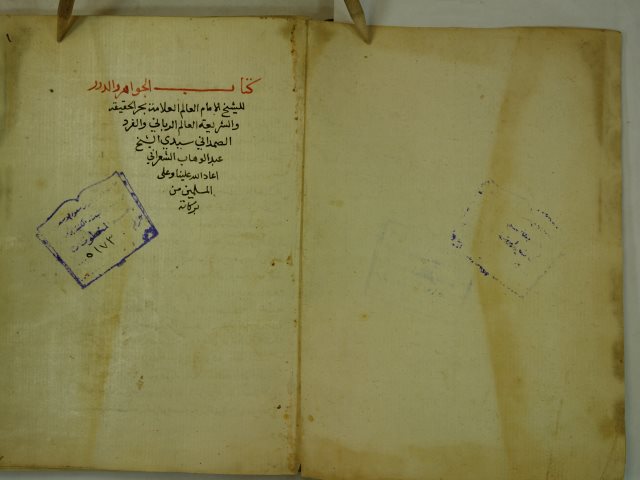 كتاب الجواهر والدرر
للشيخ الامام العالم العلامة بحر الحقيقة
والشريعة العالم الرباني والفرد
الصمداني سيدي الشيخ
عبد الوهاب الشعراني
اعاد الله علينا وعلى
المسلمين من
بركاته
١
٥١٧٣